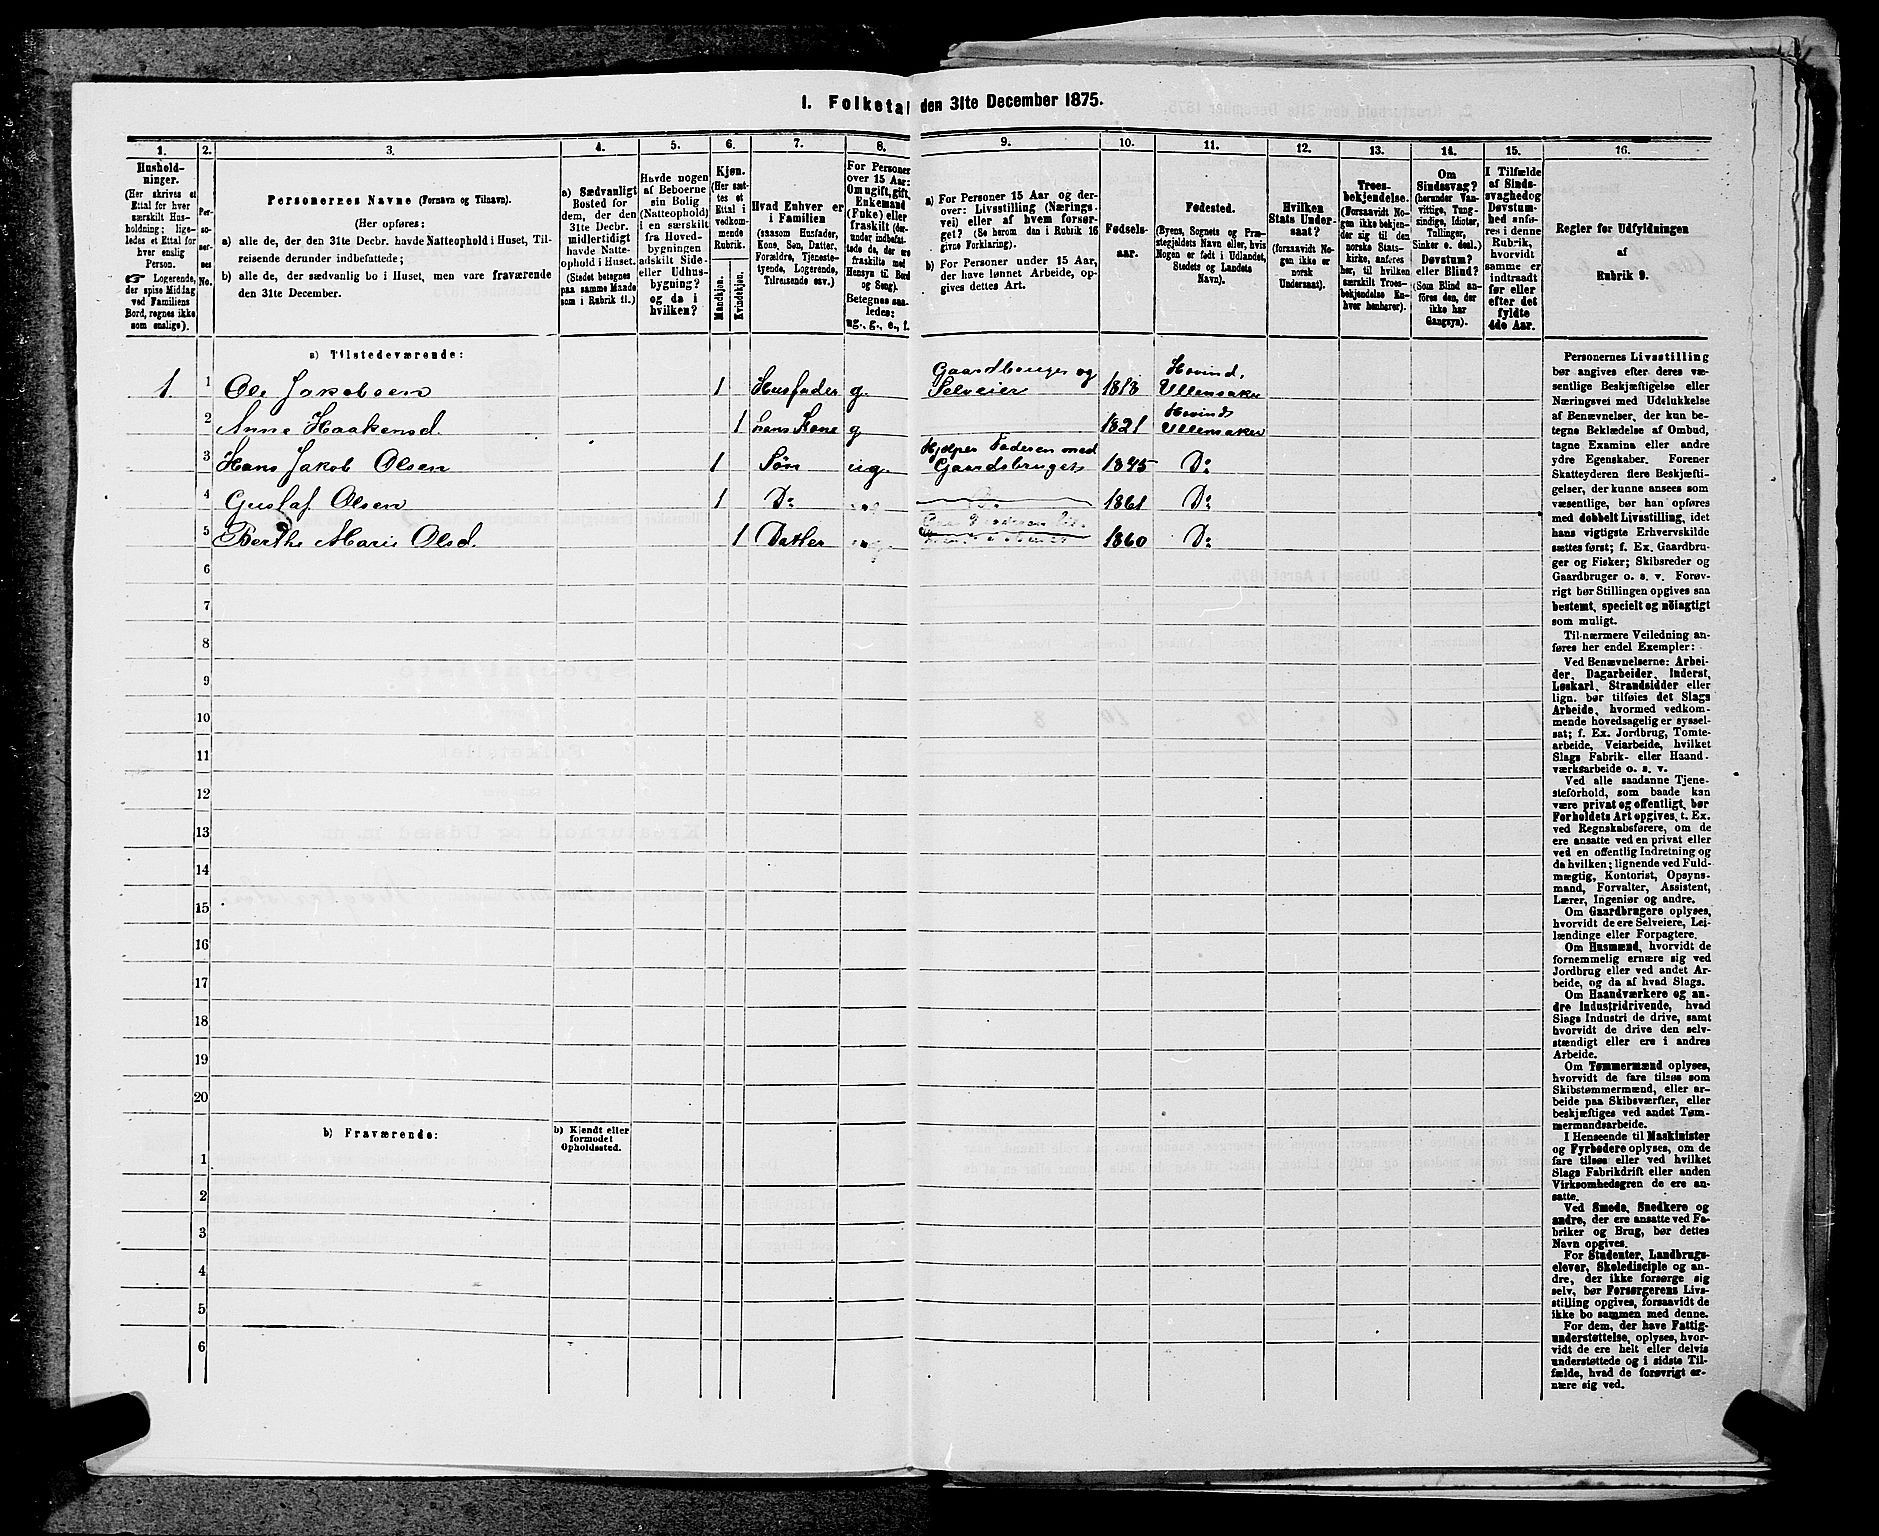 I. Folketal den 31te December 1875.
1. 2. 3. 4. 5. 6. 7. 8. 9. 10. 11. 12. 13. 14. 15. 16.
Hushold-
ninger.
(Her skrives et
Ettal for hver
særskilt Hus-
holdning; lige-
ledes et Ettal for
hver enslig
Person.
☞ Logerende,
der spise Middag
ved Familiens
Bord, regnes ikke
som enslige).
Per-
so-
ner-
nes
No.
Personernes Navne (Fornavn og Tilnavn).
(Her opføres:
a) alle de, der den 31te Decbr. havde Natteophold i Huset, Til-
reisende derunder indbefattede;
b) alle de, der sædvanlig bo i Huset, men vare fraværende
den 31te December.
a) Sædvanligt
Bosted for
dem, der den
31te Decbr.
midlertidigt
havde Natte-
ophold i Huset.
(Stedet betegnes
paa samme Maade
som i Rubrik 11.)
Havde nogen
af Beboerne
sin Bolig
(Natteophold)
i en særskilt
fra Hoved-
bygningen
adskilt Side-
eller Udhus-
bygning?
og da i
hvilken?
Kjøn.
(Her sæt-
tes et
Ettal i
vedkom-
mende
Rubrik.
Mandkjøn.
Kvindekjøn.
Hvad Enhver er
i Familien
(saasom Husfader,
Kone, Søn, Datter,
Forældre, Tjeneste-
tyende, Logerende,
Tilreisende osv.)
For Personer
over 15 Aar:
Om ugift, gift,
Enkemand
(Enke) eller
fraskilt (der-
under indbefat-
tede de, der ere
fraskilte med
Hensyn til Bord
og Seng).
Betegnes saa-
ledes:
ug., g., e., f.
a) For Personer 15 Aar og der-
over: Livsstilling (Nærings-
vei) eller af hvem forsør-
get? (Se herom den i Rubrik 16
givne Forklaring).
b) For Personer under 15 Aar,
der have lønnet Arbeide, op-
gives dettes Art.
Fødsels-
aar.
Fødested.
(Byens, Sognets og Præ-
stegjeldets Navn eller, hvis
Nogen er født i Udlandet,
Stedets og Landets
Navn).
Hvilken
Stats Under-
saat?
(forsaavidt No-
gen ikke er
norsk
Undersaat).
Troes-
bekjendelse.
(Forsaavidt No-
gen ikke bekjen-
der sig til den
norske Stats-
kirke, anføres
her, til hvilken
særskilt Troes-
bekjendelse En-
hver henhører).
Om
Sindssvag?
(herunder Van-
vittige, Tung-
sindige, Idioter,
Tullinger,
Sinker o. desl.)
Døvstum?
eller Blind?
(Som Blind an-
føres den, der
ikke har
Gangsyn).
I Tilfælde
af Sinds-
svaghed og
Døvstum-
hed anfø-
res i denne
Rubrik,
hvorvidt
samme er
indtraadt
før eller
efter det
fyldte
4de Aar.
Regler for Udfyldningen
af
Rubrik 9.
a) Tilstedeværende:
1. 1 Ole Jakobsen 1 Husfader g. Gaardbruger og Selveier 1813 Hovind, Ullensaker
2 Anne Haakensd. 1 hans Kone g Hovind Ullensaker 1821
3 Hans Jakob Olsen 1 Søn ug. Hjelper Faderen med Gaardsbruget 1845 Do
4 Gustaf Olsen 1 Do 1861 Do
5 Berthe Marie Olsd. 1 Datter 1860 Do
6
7
8
9
10
11
12
13
14
15
16
17
18
19
20
b) Fraværende:
b) Kjendt eller
formodet
Opholdssted.
1
2
3
4
5
6
Personernes Livsstilling
bør angives efter deres væ-
sentlige Beskjæftigelse eller
Næringsvei med Udelukkelse
af Benævnelser, der kun be-
tegne Beklædelse af Ombud,
tagne Examina eller andre
ydre Egenskaber. Forener
Skatteyderen flere Beskjæfti-
gelser, der kunne ansees som
væsentlige, bør han opføres
med dobbelt Livsstilling, idet
hans vigtigste Erhvervskilde
sættes først; f. Ex. Gaardbru-
ger og Fisker; Skibsreder og
Gaardbruger o. s. v. Forøv-
rigt bør Stillingen opgives saa
bestemt, specielt og nøiagtigt
som muligt.
Til nærmere Veiledning an-
føres her endel Exempler:
Ved Benævnelserne: Arbei-
der, Dagarbeider, Inderst,
Løskarl, Strandsidder eller
lign. bør tilføies det Slags
Arbeide, hvormed vedkom-
mende hovedsagelig er syssel-
sat; f. Ex. Jordbrug, Tomte-
arbeide, Veiarbeide, hvilket
Slags Fabrik- eller Haand-
værksarbeide o. s. v.
Ved alle saadanne Tjene-
steforhold, som baade kan
være privat og offentligt, bør
Forholdets Art opgives, t. Ex.
ved Regnskabsførere, om de
ere ansatte ved en privat eller
ved en offentlig Indretning og
da hvilken; lignende ved Fuld-
mægtig, Kontorist, Opsyns-
mand, Forvalter, Assistent,
Lærer, Ingeniør og andre.
Om Gaardbrugere oplyses,
hvorvidt de ere Selveiere, Lei-
lændinge eller Forpagtere.
Om Husmænd, hvorvidt de
fornemmelig ernære sig ved
Jordbrug eller ved andet Ar-
beide, og da af hvad Slags.
Om Haandværkere og an-
dre Industridrivende, hvad
Slags Industri de drive, samt
hvorvidt de drive den selv-
stændigt eller ere i andres
Arbeide.
Om Tømmermænd oplyses,
hvorvidt de fare tilsøs som
Skibstømmermænd, eller ar-
beide paa Skibsværfter, eller
beskjæftiges ved andet Tøm-
mermandsarbeide.
I Henseende til Maskinister
og Fyrbødere oplyses, om de
fare tilsøs eller ved hvilket
Slags Fabrikdrift eller anden
Virksomhedsgren de ere an-
satte.
Ved Smede, Snedkere og
andre, der ere ansatte ved Fa-
briker og Brug, bør dettes
Navn opgives.
For Studenter, Landbrugs-
elever, Skoledisciple og an-
dre, der ikke forsørge sig
selv, bør Forsørgerens Livs-
stilling opgives, forsaavidt de
ikke bo sammen med denne.
For dem, der have Fattig-
understøttelse, oplyses, hvor-
vidt de ere helt eller delvis
understøttede og i sidste Til-
fælde, hvad de forøvrigt er-
nære sig ved.